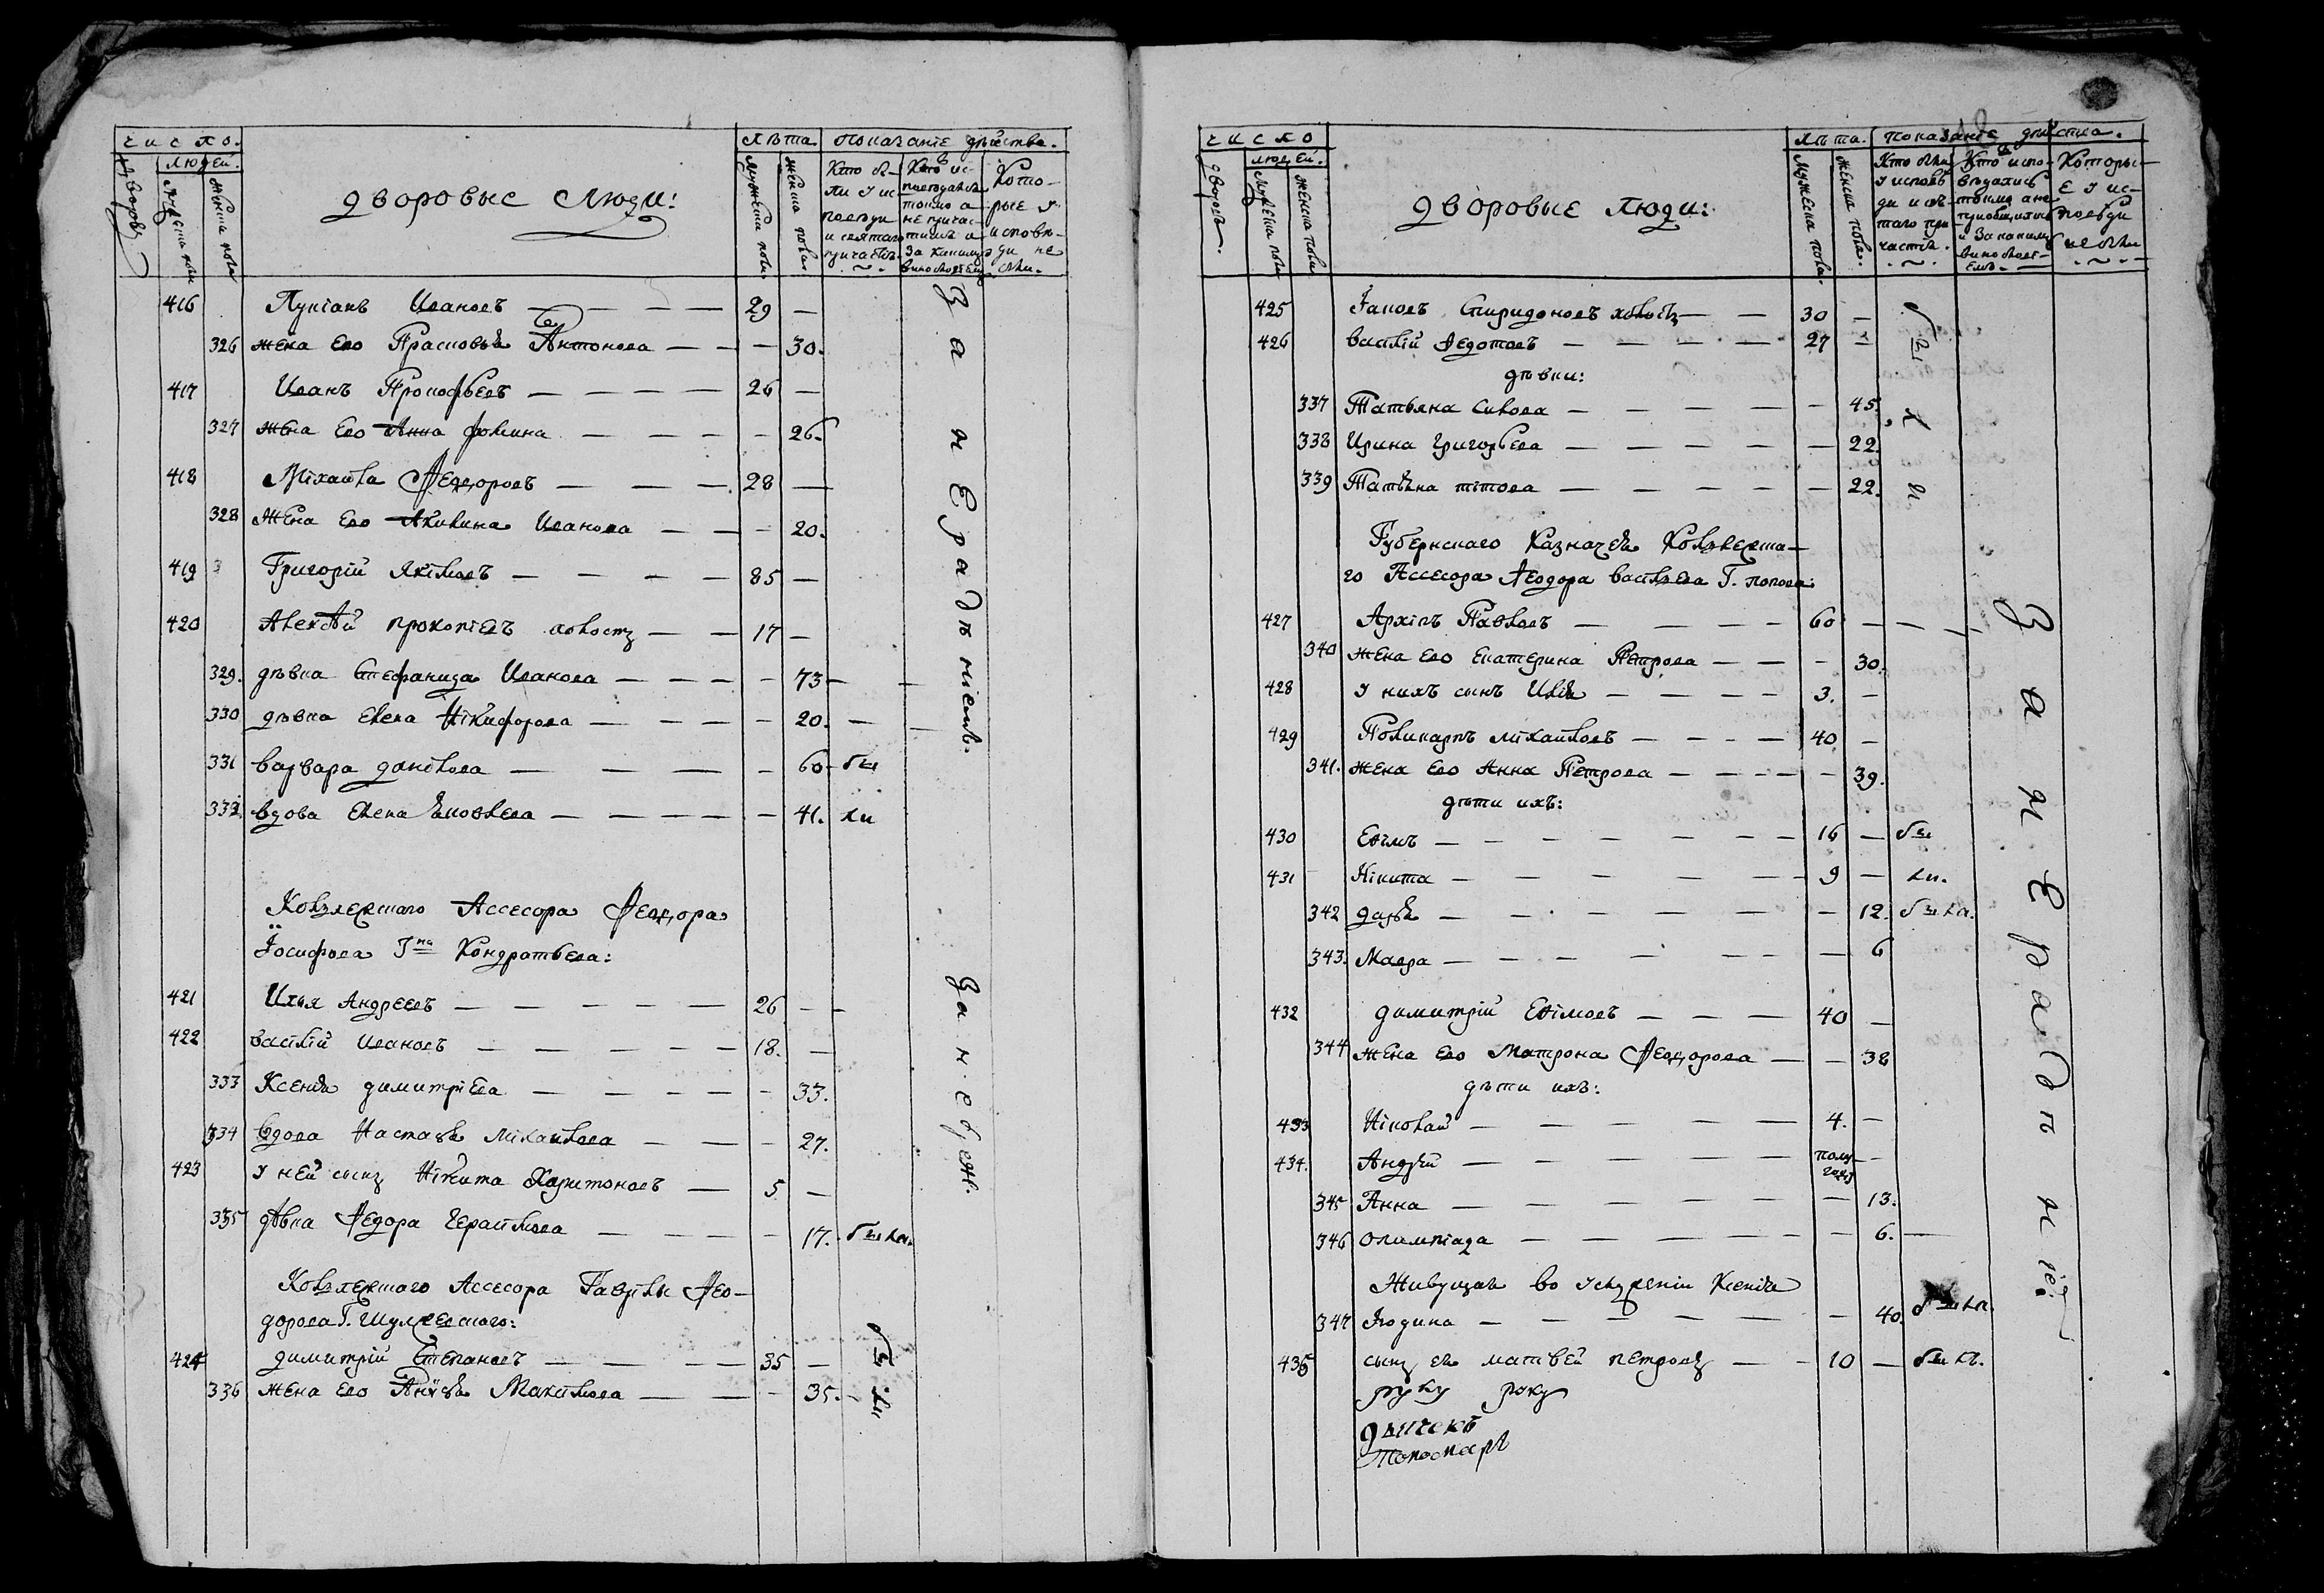 число.
людей.
дворовъ
мужеска пола
женска пола
дворовые люди:
лѣта.
мужеска пола
женска пола.
показаніе дѣйства.
Кто бы-
ли у ис-
повѣди
и святаго
причастія.
Кто ис-
поведался
токмо а
не причас-
тился и
за какимъ
винословіемъ
Кото-
рые у
исповѣ-
ди не
были.
416 Лукіанъ Ивановъ 29
326 жена Его Прасковья Антонова 30.
417 Иванъ Прокофьевъ 26
327 жена Его Анна фомина 26.
418 Міхайла Феодоровъ 28
328 Жена Его Акилина Иванова 20.
419 Григорій Якімовъ 85
420 Алексѣй прокопіевъ холостъ 17
329. дѣвка Стефанида Иванова 73
330 дѣвка Елена Нікифорова 20.
331 варвара данілова 60 бы
332 вдова Елена Яковлева 41. ли
Занерадѣніемъ.
Коллежскаго Ассесора Феодора
Іосифова Гна Кондратьева:
421 Илья Андреевъ 26
422 василій Ивановъ 18.
333 Ксенія димитріева 33.
334 вдова Настасья міхайлова 27.
423 у ней сынъ Нікита Харитоновъ 5
335 дѣвка Федора Герасимова 17. были.
Занебреж.
Коллежскаго Ассесора Гаврилы Фео-
дорова Г.
424 димитрій Степановъ 35
336 жена его Анисья Максимова 35.
были
число
людей.
дворовъ.
мужеска пола
женска пола
дворовые люди:
лѣта.
мужеска пола.
женска пола.
показаніе дѣйства.
Кто были
у исповѣ
ди и свя-
таго при
частія.
Кто испо-
вѣдались
токмо а не
приобщились
и за какимъ
винослові-
емъ.
Которы-
е у ис-
повѣди
не были
425 Іаковъ Спиридоновъ холостъ 30
426 василій Федотовъ 27
дѣвки:
337 Татьяна силова 45.
338 Ирина григорьева 22.
339 Татьяна тітова 22.
были
Губернскаго Казначея Коллежска-
го Ассесора Феодора васильева Г. попова:
427 Архіпъ Павловъ 60
340 жена его Екатерина Петрова 30.
428 у нихъ сынъ Илія 3.
429 Поликарпъ міхайловъ 40
341. жена Его Анна Петрова 39.
дѣти ихъ:
430 Ефимъ 16 бы
431 Нікита 9 ли.
342 дарья 12. была.
343. Мавра 6
432 димитрій Ефімовъ 40
344 жена его Матрона Феодорова 38
дѣти ихъ:
433 Ніколай 4.
434. Андрей полу
года
345 Анна 13.
346 олимпіада 6.
Занерадѣніе.
Живущая во услуженіи Ксенія
347 Юдина 40. была.
435 сынъ ея матвей петровъ 10 былъ.
руку